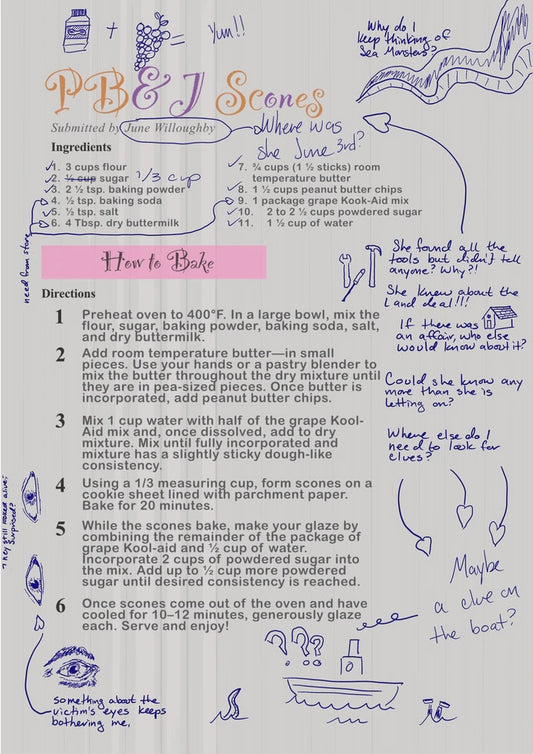 Yum!!
Why do I
keep thinking of
Sea Monsters?
PB&J Scones
Submitted by June Willoughby
Where was
she June 3rd?
Ingredients
1. 3 cups flour
2. ½ cup sugar 1/3 cup
3. 2 ½ tsp. baking powder
4. ½ tsp. baking soda
5. ½ tsp. salt
6. 4 Tbsp. dry buttermilk
7. ¾ cups (1 ½ sticks) room
temperature butter
8. 1 ½ cups peanut butter chips
9. 1 package grape Kook-Aid mix
10. 2 to 2 ½ cups powdered sugar
11. 1 ½ cup of water
need from store
How to Bake
Directions
1 Preheat oven to 400°F. In a large bowl, mix the
flour, sugar, baking powder, baking soda, salt,
and dry buttermilk.
2 Add room temperature butter—in small
pieces. Use your hands or a pastry blender to
mix the butter throughout the dry mixture until
they are in pea-sized pieces. Once butter is
incorporated, add peanut butter chips.
3 Mix 1 cup water with half of the grape Kool-
Aid mix and, once dissolved, add to dry
mixture. Mix until fully incorporated and
mixture has a slightly sticky dough-like
consistency.
4 Using a 1/3 measuring cup, form scones on a
cookie sheet lined with parchment paper.
Bake for 20 minutes.
5 While the scones bake, make your glaze by
combining the remainder of the package of
grape Kool-aid and ½ cup of water.
Incorporate 2 cups of powdered sugar into
the mix. Add up to ½ cup more powdered
sugar until desired consistency is reached.
6 Once scones come out of the oven and have
cooled for 10–12 minutes, generously glaze
each. Serve and enjoy!
She found all the
tools but didn't tell
anyone? Why?!
She knew about the
land deal!!!
If there was
an affair, who else
would know about it?
Could she know any
more than she is
letting on?
Where else do I
need to look for
clues?
Maybe
a clue on
the boat?
They still looked alive.
Surprised?
???
something about the
victim's eyes keeps
bothering me.